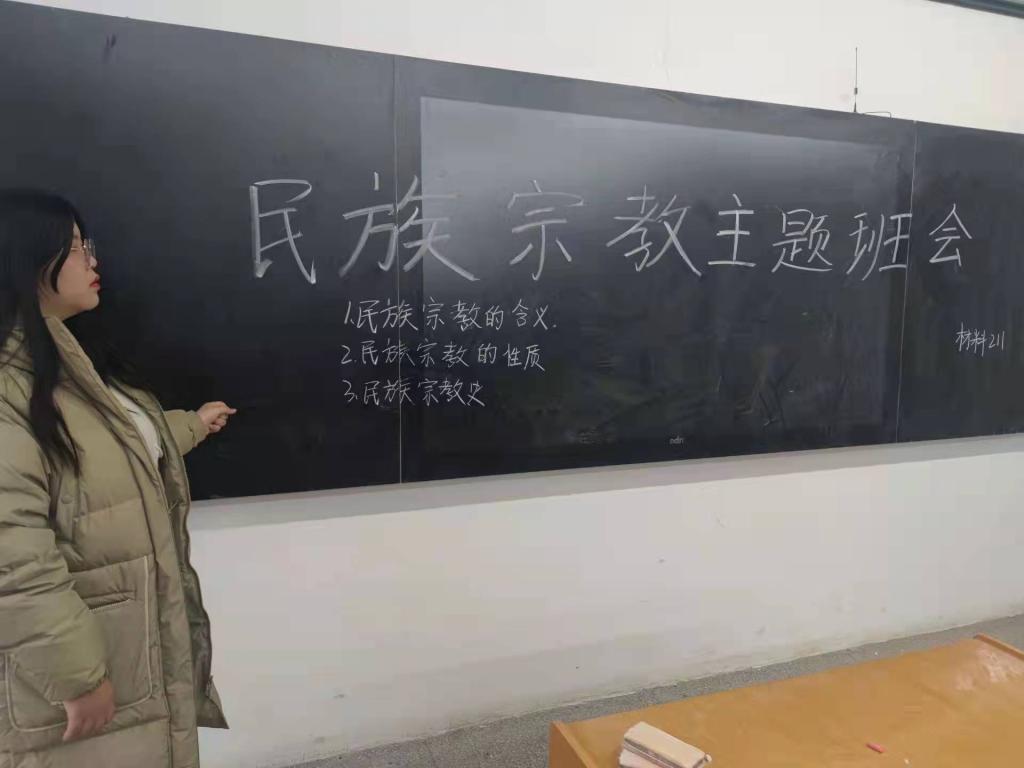 民族宗教主题班会
1.民族宗教的含义.
2.民族宗教的性质
3.民族宗教史
材料211